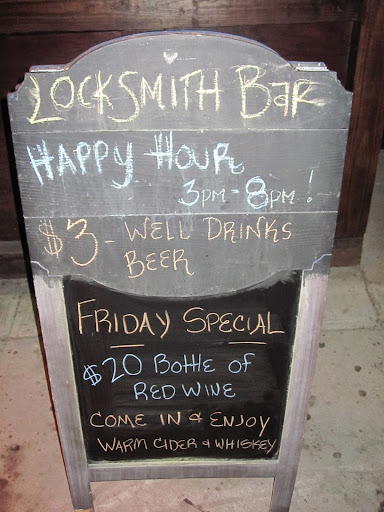 LOCKSMITH BAR
HAPPY HOUR
3PM - 8PM!
$3 - WELL DRINKS
BEER
FRIDAY SPECIAL
$20 BOttLE OF
RED WINE
COME IN & ENJOY
WARM CIDER & WHISKEY